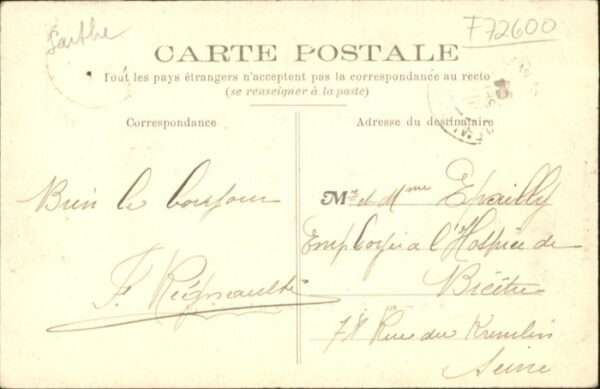 Sarthe
F72600
CARTE POSTALE
Tout les pays étrangers n'acceptent pas la correspondance au recto
(se renseigner à la poste)
Correspondance
Adresse du destinataire
Bien le bonjour
F. Régneault
Mr et Mme Epailly
Employé à l'Hospice de
Bicêtre
78 Rue du Kremlin
Seine